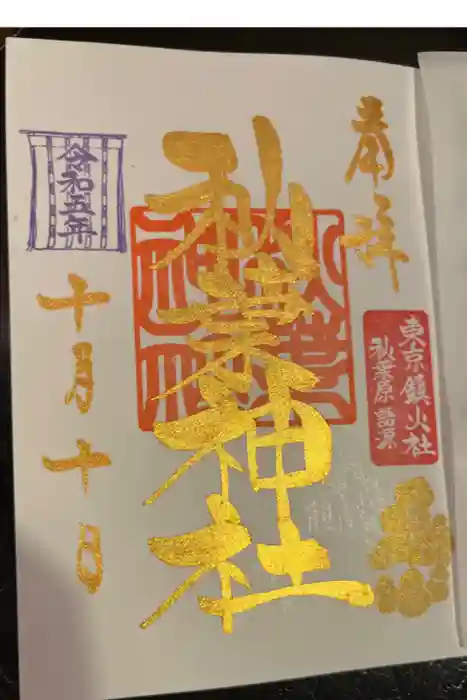 奉拝
東京鎮火社
秋葉原語源
秋葉神社
令和五年
十月十日